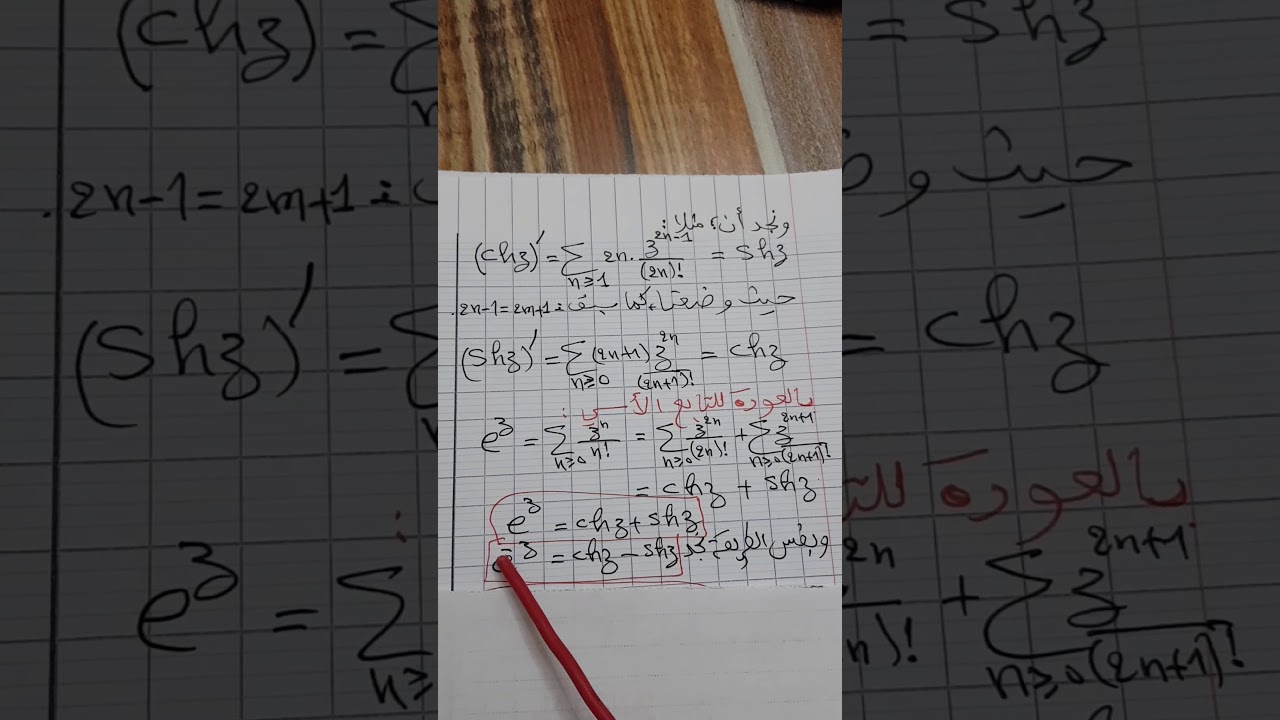 ونجد أن، مثلا:
(chz)' = ∑_{n≥1} 2n · z^{2n-1}/(2n)! = shz
حيث وضعنا، كما سبق: 2n-1 = 2m+1.
(shz)' = ∑_{n≥0} (2n+1) z^{2n}/(2n+1)! = chz
بالعودة للتابع الأسي:
e^z = ∑_{n≥0} z^n/n! = ∑_{n≥0} z^{2n}/(2n)! + ∑_{n≥0} z^{2n+1}/(2n+1)!
= chz + shz
e^z = chz + shz
وبنفس الطريقة نجد e^{-z} = chz - shz